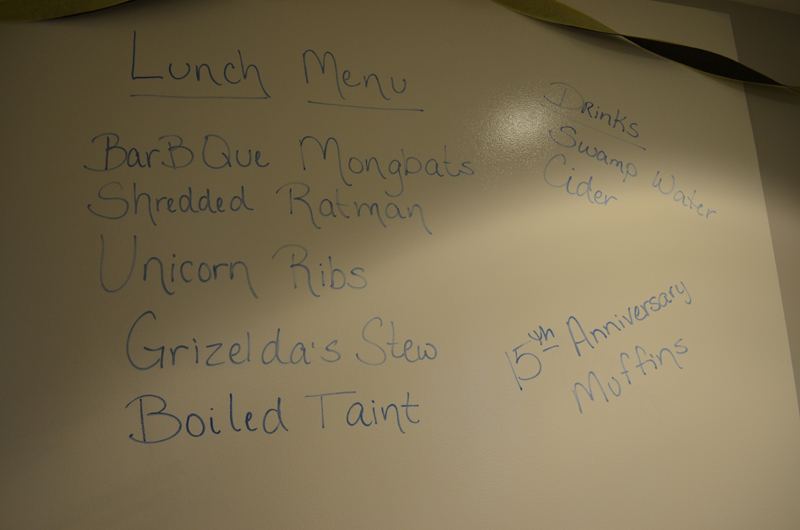 Lunch Menu
BarBQue Mongbats
Shredded Ratman
Unicorn Ribs
Grizelda's Stew
Boiled Taint
Drinks
Swamp Water
Cider
15th Anniversary
Muffins